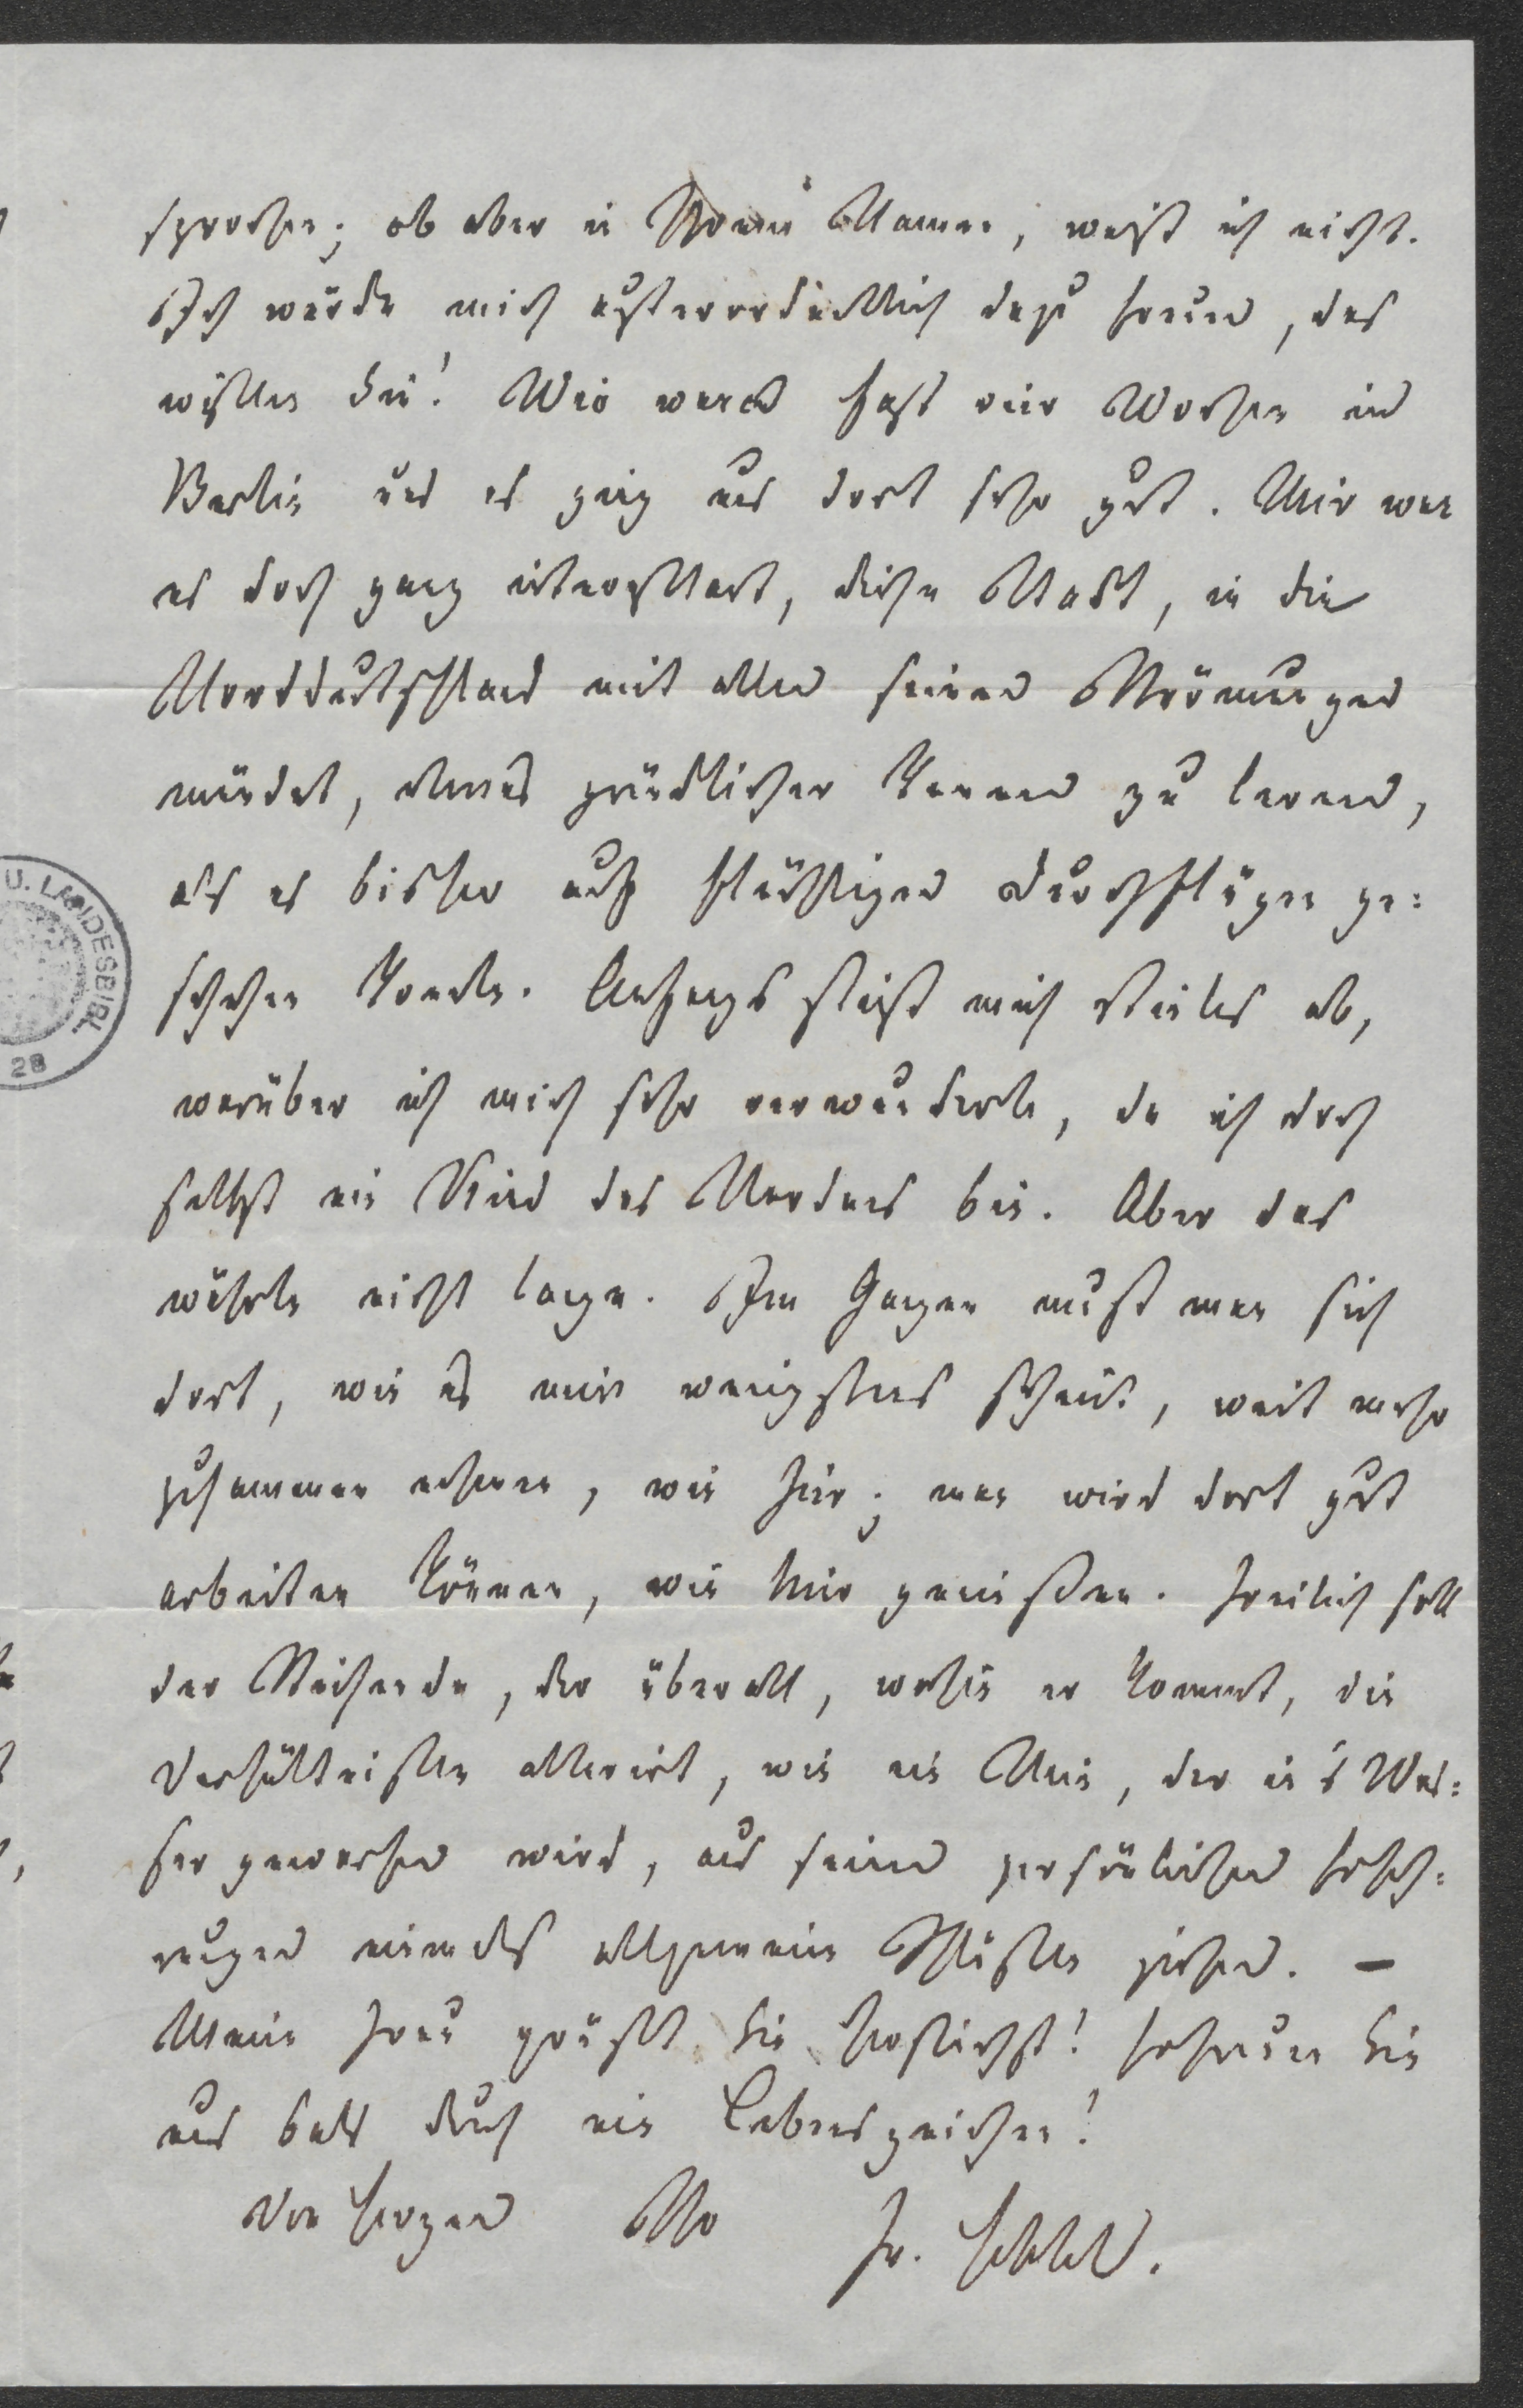 sprochen; ob aber in Ihrem Namen, weiß ich nicht.
Ich würde mich außerordentlich dazu freuen, das
wissen Sie! Wir waren fast vier Wochen in
Berlin und es ging uns dort sehr gut. Mir war
es doch ganz interessant, diese Stadt, in die
Norddeutschland mit allen seinen Strömungen
mündet, etwas gründlicher kennen zu lernen,
als es bisher auf flüchtigen Durchflügen ge=
schehen konnte. Anfangs stieß mich Vieles ab,
worüber ich mich sehr verwunderte, da ich doch
selbst ein Kind des Nordens bin. Aber das
währte nicht lange. Im Ganzen muß man sich
dort, wie es mir wenigstens scheint, weit mehr
zusammen nehmen, wie hier; man wird dort gut
arbeiten können, wie hier genießen. Freilich soll
der Reisende, der überall, wohin er kommt, die
Verhältnisse alterirt, wie ein Stein, der in's Was=
ser geworfen wird, aus seinen persönlichen Erfah=
rungen niemals allgemeine Schlüsse ziehen. —
Meine Frau grüßt Sie herzlichst! Erfreuen Sie
uns bald durch ein Lebenszeichen!
Von Herzen Ihr
Fr. Hebbel.
U. LANDESBIBL.
28